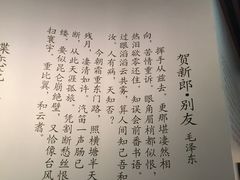 贺新郎·别友
毛泽东
挥手从兹去。更那堪凄然相
向，苦情重诉。眼角眉梢都似恨，
热泪欲零还住。知误会前番书语。
过眼滔滔云共雾，算人间知己吾和
汝。人有病，天知否？
今朝霜重东门路，照横塘半天
残月，凄清如许。汽笛一声肠已
断，从此天涯孤旅。凭割断愁丝恨
缕。要似昆仑崩绝壁，又恰像台风
扫寰宇。重比翼，和云翥。